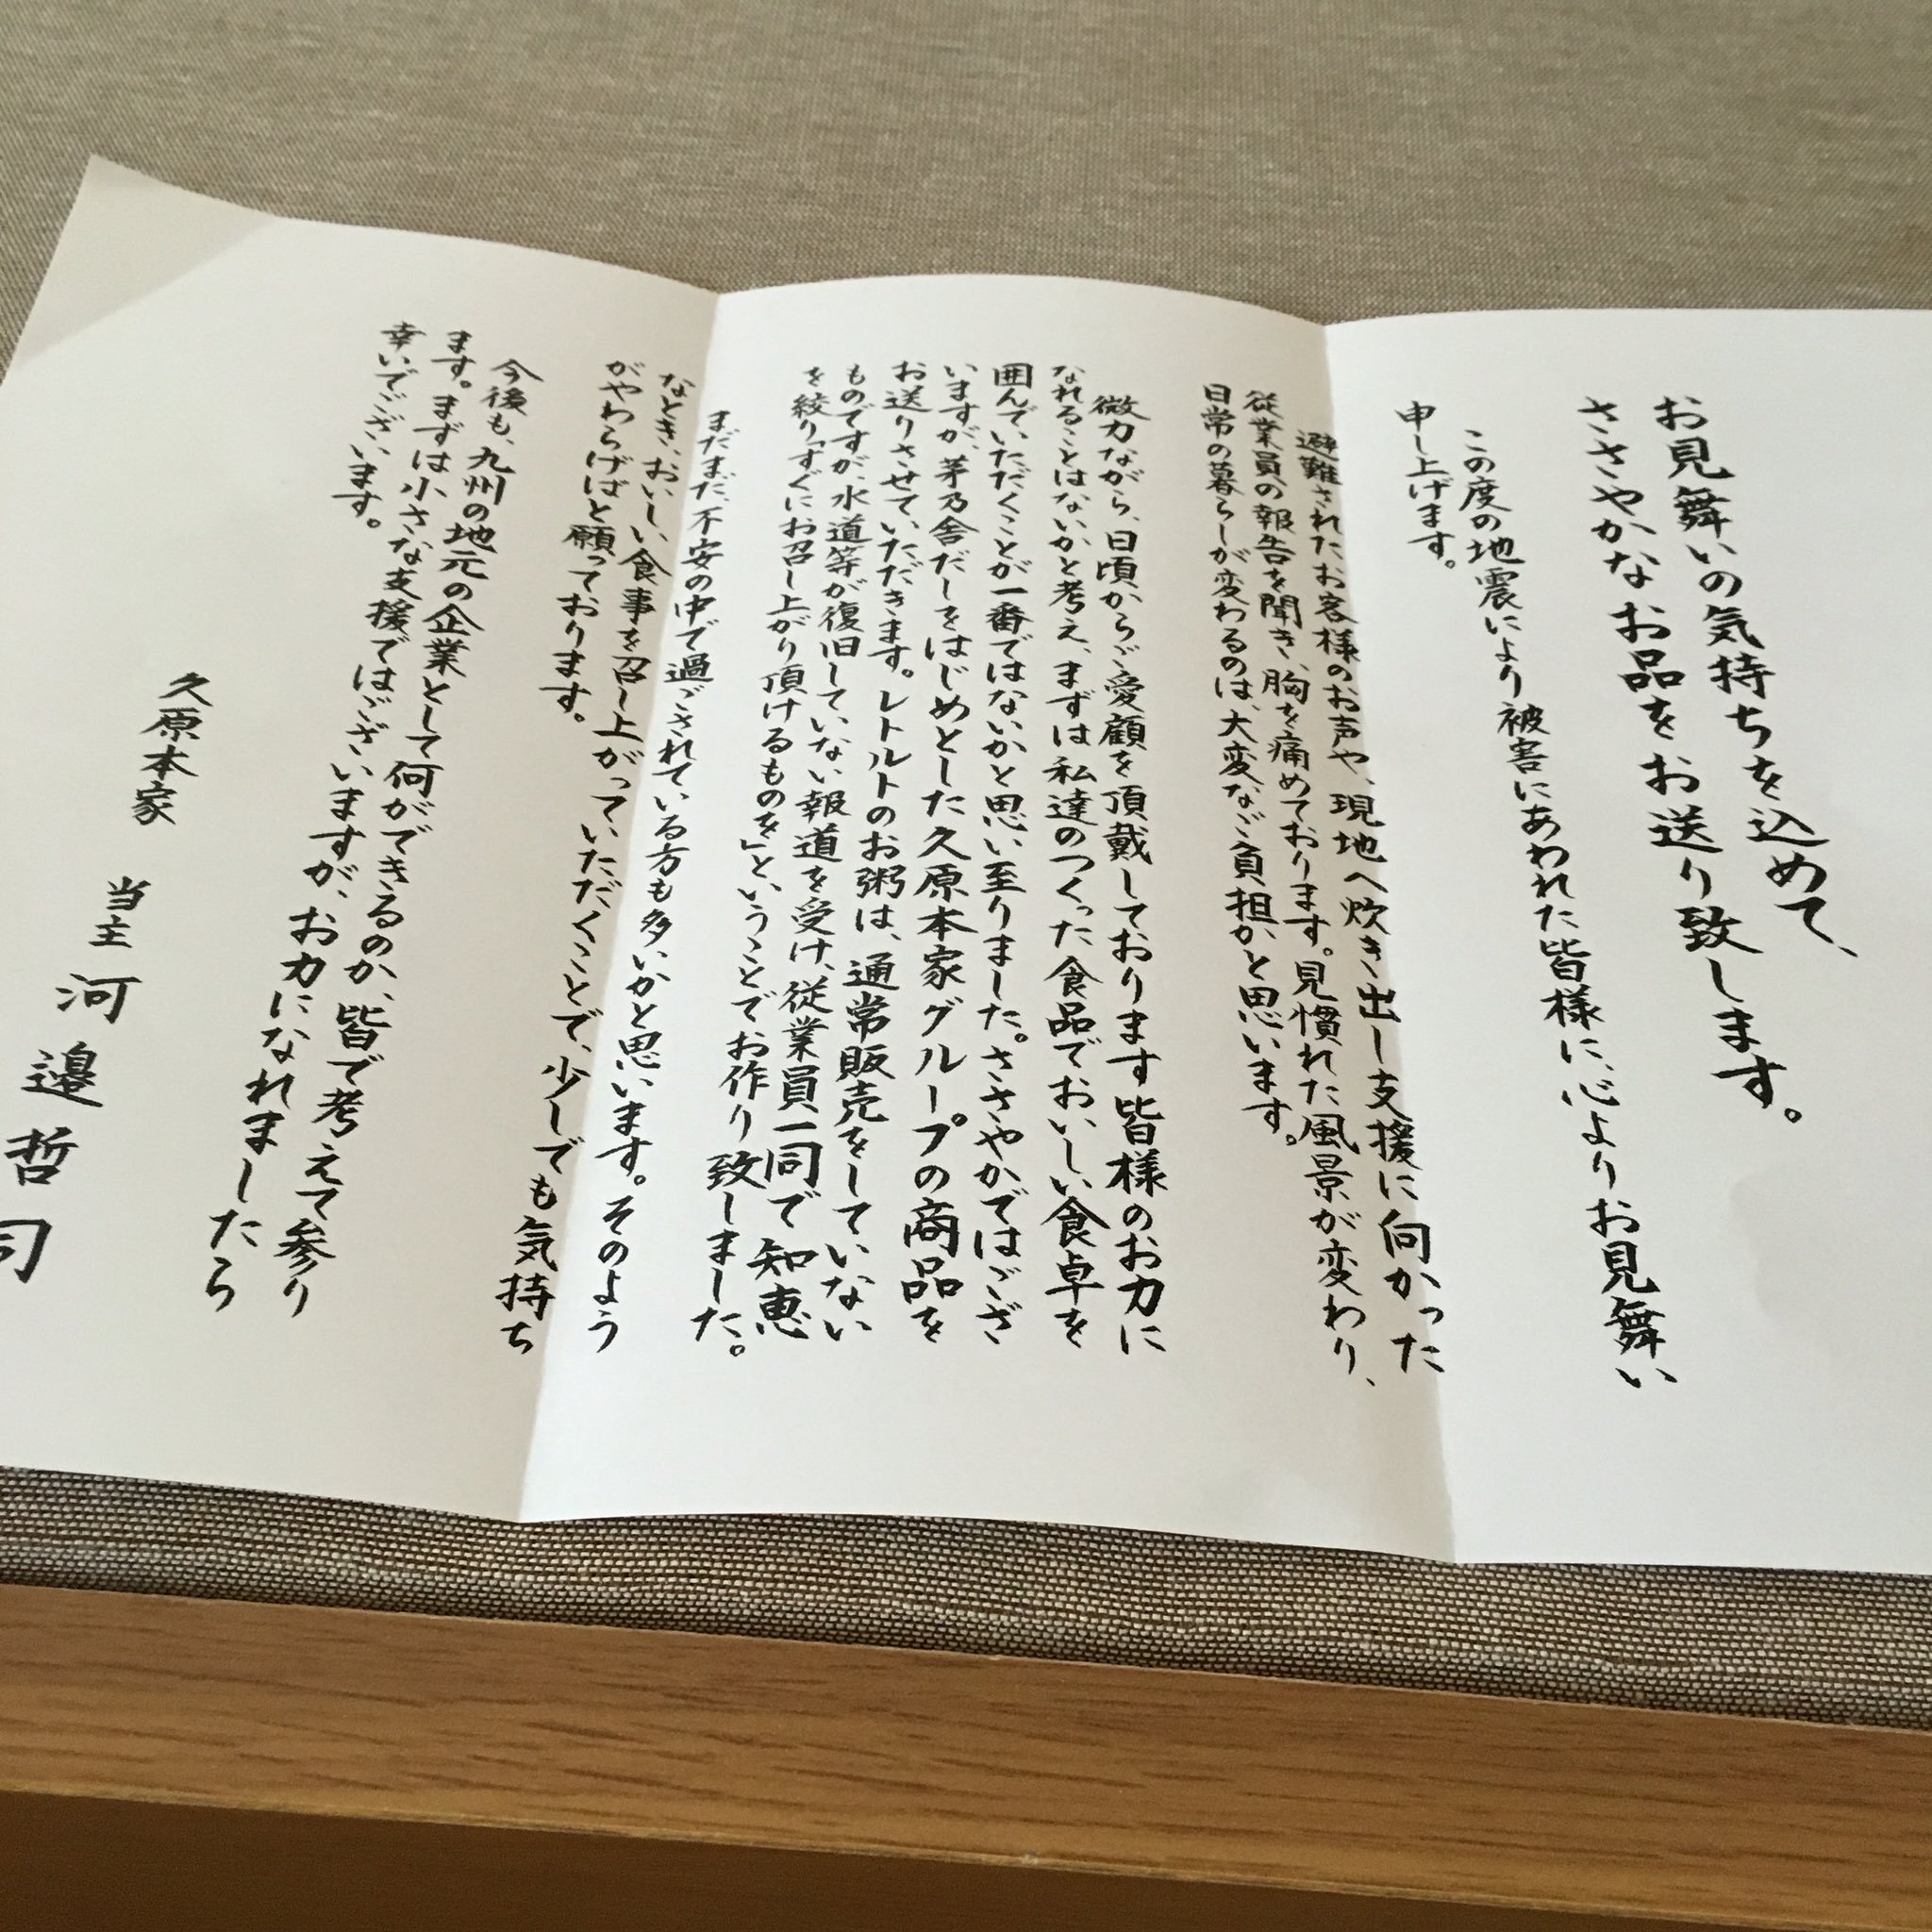 お見舞いの気持ちを込めて、
ささやかなお品をお送り致します。
この度の地震により被害にあわれた皆様に、心よりお見舞い
申し上げます。
避難されたお客様のお声や、現地へ炊き出し支援に向かった
従業員の報告を聞き、胸を痛めております。見慣れた風景が変わり、
日常の暮らしが変わるのは、大変なご負担かと思います。
微力ながら、日頃からご愛顧を頂戴しております皆様のお力に
なれることはないかと考え、まずは私達のつくった食品でおいしい食卓を
囲んでいただくことが一番ではないかと思い至りました。ささやかではござ
いますが、茅乃舎だしをはじめとした久原本家グループの商品を
お送りさせていただきます。レトルトのお粥は、通常販売をしていない
ものですが、水道等が復旧していない報道を受け、従業員一同で知恵
を絞り「すぐにお召し上がり頂けるものを」ということでお作り致しました。
まだまだ、不安の中で過ごされている方も多いかと思います。そのよう
なとき、おいしい食事を召し上がっていただくことで、少しでも気持ち
がやわらげばと願っております。
今後も、九州の地元の企業として何ができるのか、皆で考えて参り
ます。まずは小さな支援ではございますが、お力になれましたら
幸いでございます。
久原本家 当主 河邉哲司